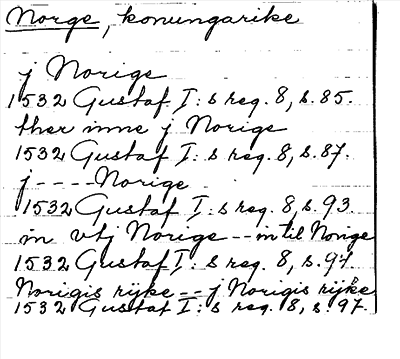 Norge, konungarike
j Norige
1532 Gustaf I:s reg. 8, s. 85.
ther inne j Norige
1532 Gustaf I:s reg. 8, s. 87.
j - - - - Norige
1532 Gustaf I:s reg. 8, s. 93.
in vtj Norige - - in til Norige
1532 Gustaf I:s reg. 8, s. 97.
Norigis rijke - - j Norigis rijke
1532 Gustaf I:s reg. 8, s. 97.